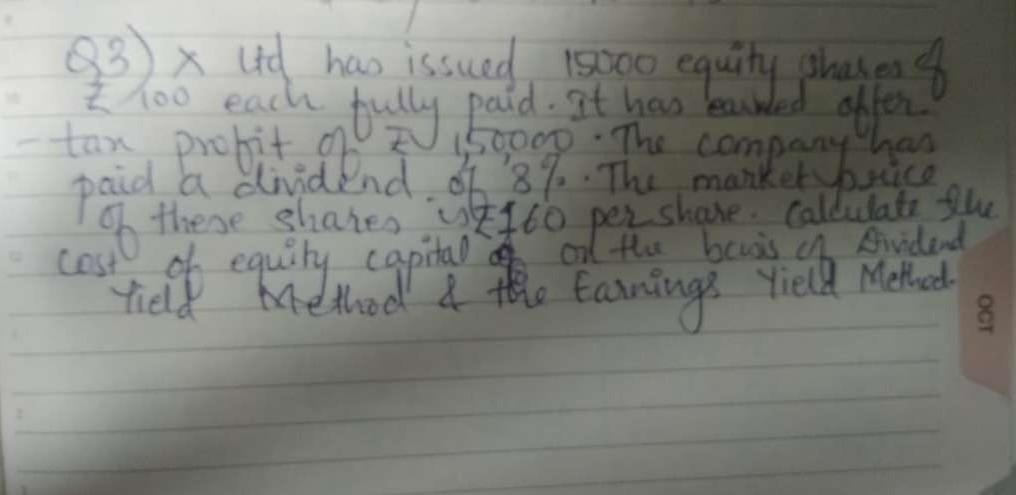 Q3) X Ltd has issued 15000 equity shares of
₹ 100 each fully paid. It has earned after
-tax profit of ₹ 1,50,000. The company has
paid a dividend of 8%. The market price
of these shares is ₹160 per share. Calculate the
cost of equity capital on the basis of Dividend
Yield Method & the Earnings Yield Method.
OCT